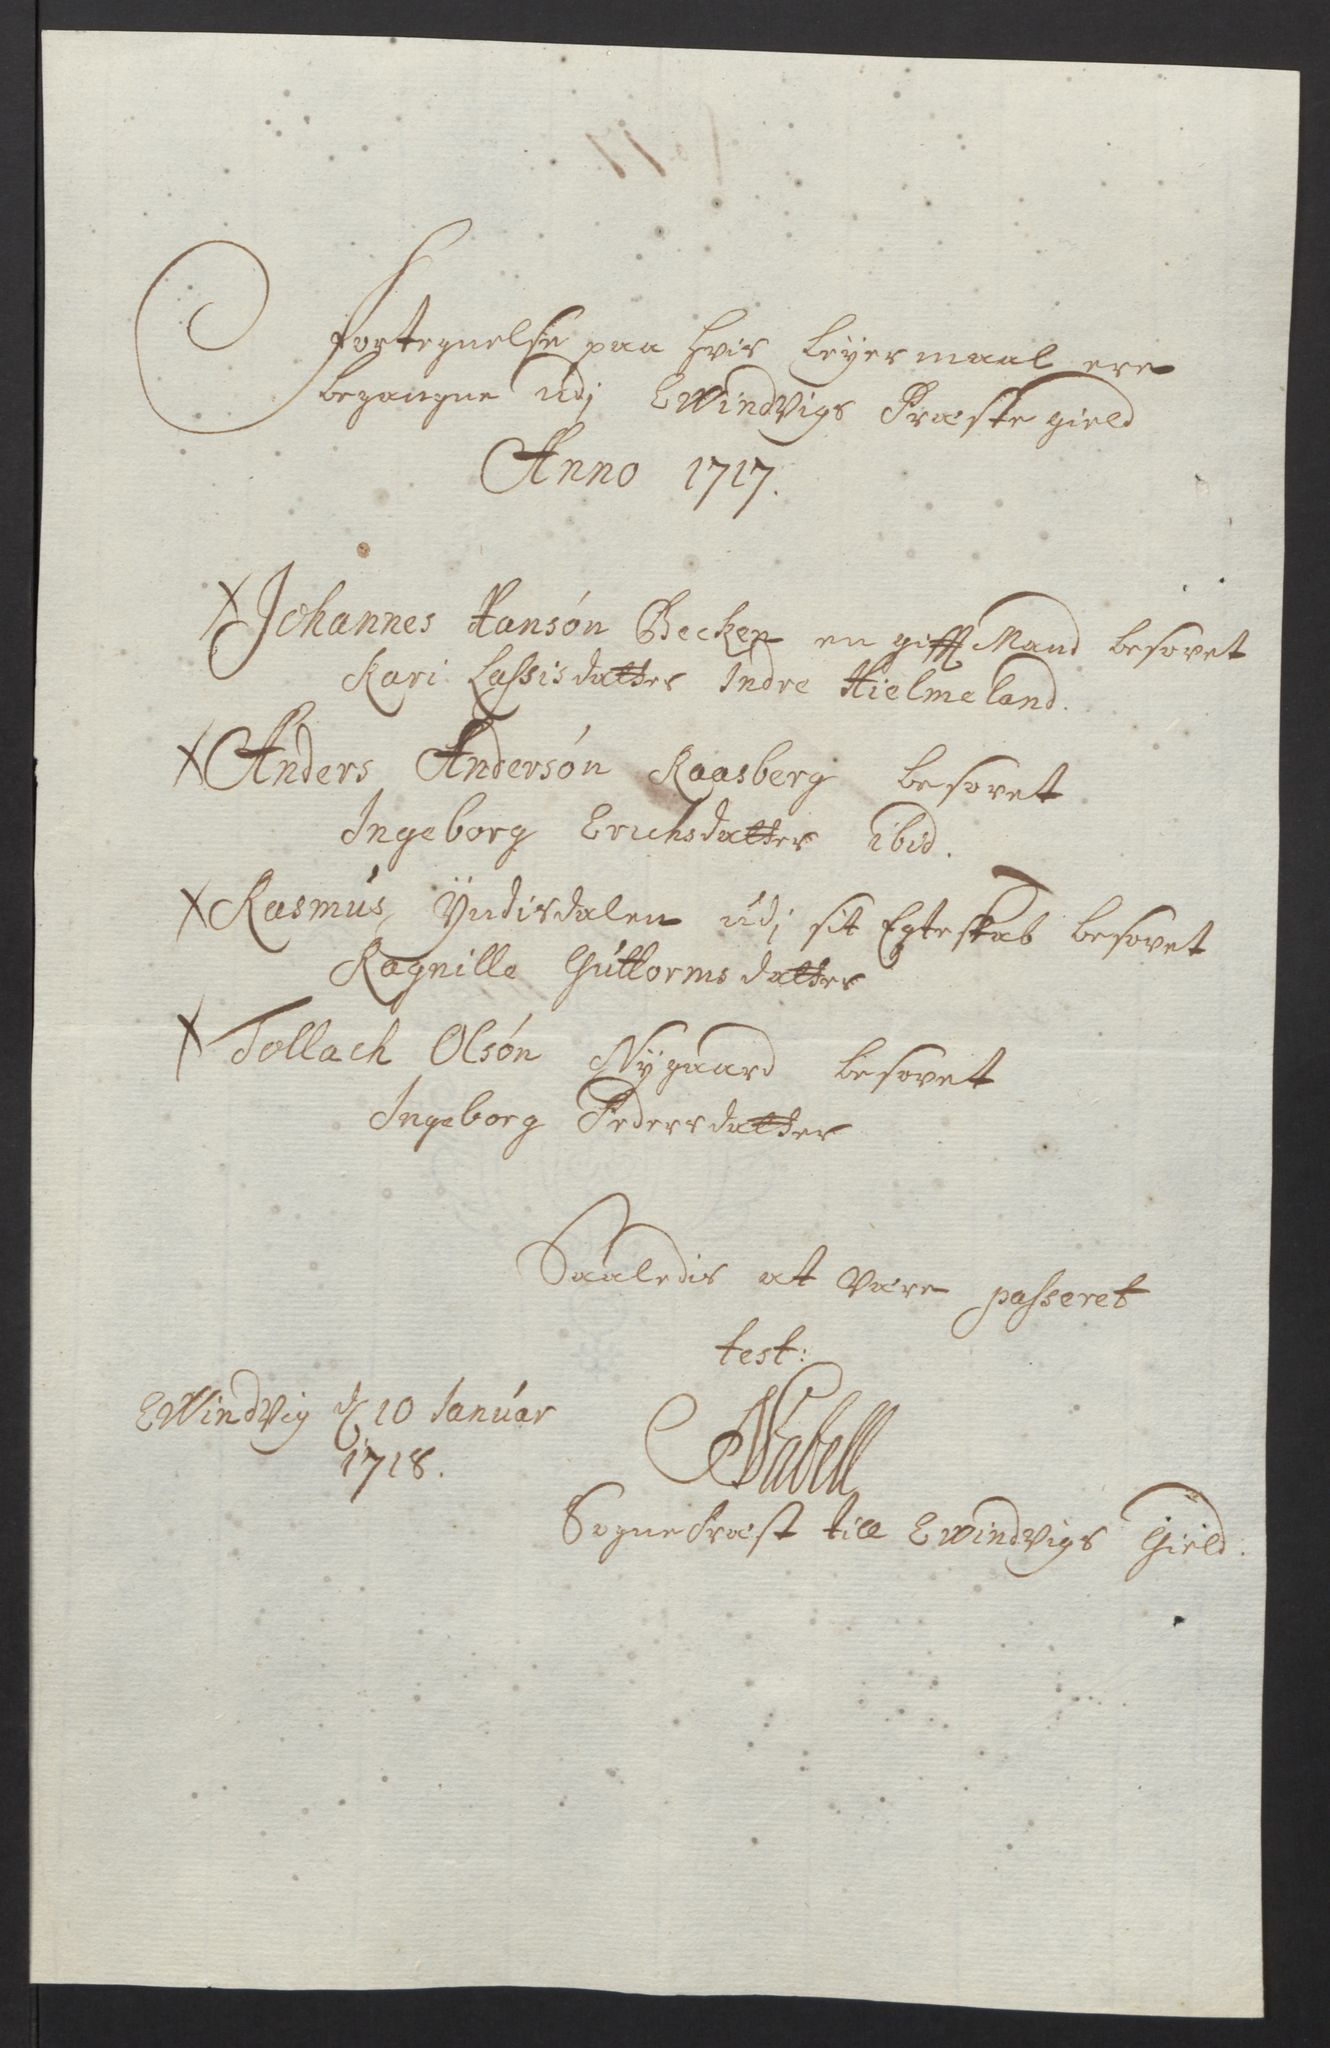 Fortegnelse paa hvis Leyermaal ere
begangne udj EWindvigs Præstegield
Anno 1717.
X Johannes Hansøn Becken en gifft Mand besovet
Kari Lassisdatter Indre Hielmeland.
X Anders Andersøn Raasberg besovet
Ingeborg Erichsdatter ibid.
X Rasmus Ÿndisdalen udj sit Egteskab besovet
Ragnille Guttormsdatter
X Tollach Olsøn Nÿgaard besovet
Ingeborg Pedersdatter
Saaledis at være passeret
test:
EWindvig d 10 Januar
1718.
Nabell
Sognepræst till Ewindvigs Gield.